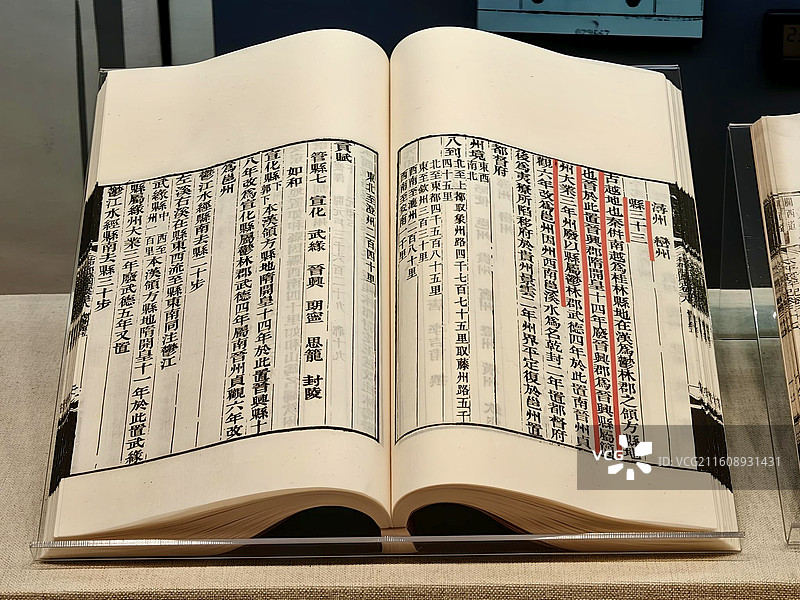 潯州 巒州
縣三十三
古越地也秦併南越為桂林縣地在漢為鬱林郡之領方縣地
也晉於此置晉興郡隋開皇十四年廢晉興郡為晉興縣屬簡
州大業三年州廢以縣屬鬱林郡武德四年於此置南晉州貞
觀六年改為邕州因州西南邕溪水為名乾封二年置都督府
後為夷獠所陷移府於貴州景雲二年州界平定復於邕州置
都督府
州境東西
南北
八到北至上都取象州路四千七百七十五里取藤州路五千
四十五里
北至東都四千五百八十五里
東至欽州三百五十里
西南至瀼州三百里
東北至澂州二百四十里
貢賦
管縣七 宣化 武緣 晉興 朗寧 思龍 封陵
如和
宣化縣郭下本漢領方縣地隋開皇十四年於此置晉興縣十
八年改為宣化縣屬鬱林郡武德四年屬南晉州貞觀六年改
為邕州
鬱江水經縣南去縣二十步
左溪右溪在縣東西流至縣東南同注鬱江
武緣縣中 西至州一百里本漢領方縣地隋開皇十一年於此置武緣
縣屬緣州大業二年廢武德五年又置
鬱江水經縣南去縣三十步
VCG
ID:VCG211608931431